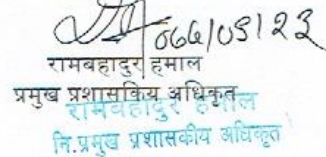 ०६६/०५/२३
रामबहादुर हमाल
प्रमुख प्रशासकिय अधिकृत
रामबहादुर हमाल
नि.प्रमुख प्रशासकीय अधिकृत